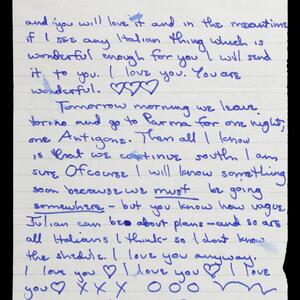 and you will love it and in the meantime
if I see any Italian thing which is
wonderful enough for you I will send
it to you. I love you. You are
wonderful. ♡♡♡
Tomorrow morning we leave
Torino and go to Parma for one night,
one Antigone. Then all I know
is that we continue south I am
sure Ofcourse I will know something
soon because we must be going
somewhere - but you know how vague
Julian can be about plans - and so are
all Italians I think - so I dont know
the shedule. I love you anyway.
I love you ♡ I love you ♡ I love
you ♡ X X X O O O